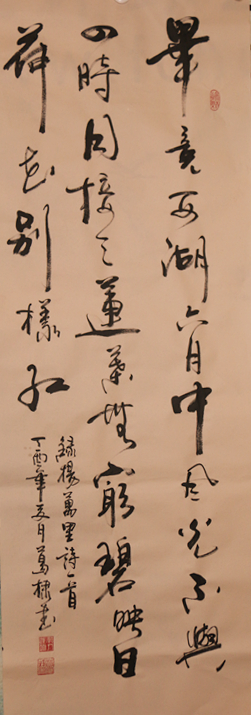 畢竟西湖六月中風光不與
四時同接天蓮葉無窮碧映日
荷花別樣紅
錄楊萬里詩一首
丁酉年夏月